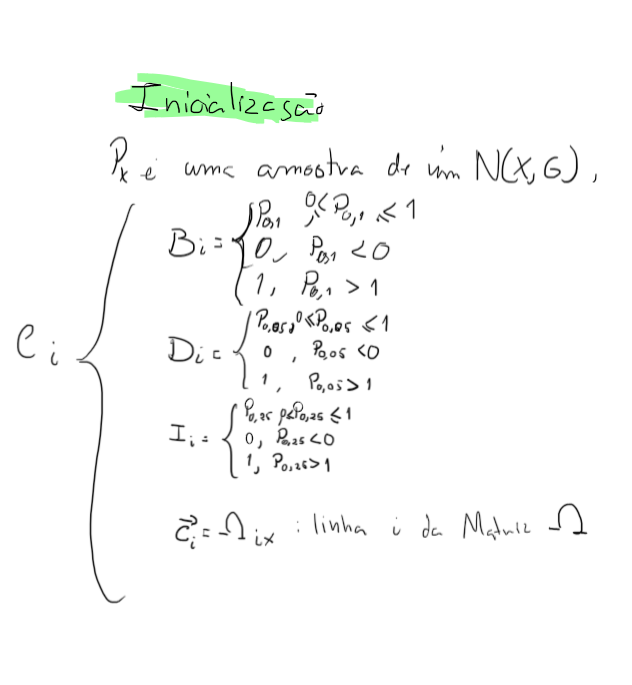 Inicialização
Pₓ é uma amostra de um N(X,G),
Bᵢ = { P₀,₁ , 0 < P₀,₁ ≤ 1
0, P₀,₁ < 0
1, P₀,₁ > 1
Cᵢ {
Dᵢ = { P₀,₀₅, 0 ≤ P₀,₀₅ ≤ 1
0 , P₀,₀₅ < 0
1, P₀,₀₅ > 1
Iᵢ = { P₀,₂₅ 0 ≤ P₀,₂₅ ≤ 1
0, P₀,₂₅ < 0
1, P₀,₂₅ > 1
c⃗ᵢ = Ωᵢₓ : linha i da Matriz Ω